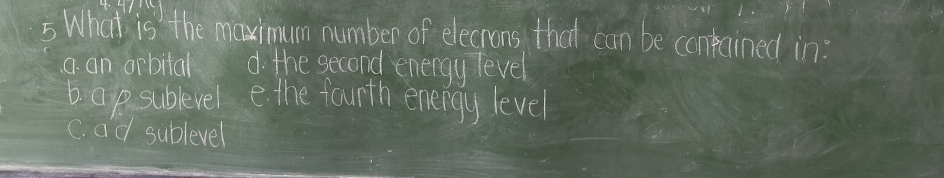 5 What is the maximum number of elecrons that can be contained in:
a. an orbital d. the second energy level
b. a p sublevel e. the fourth energy level
c. a d sublevel